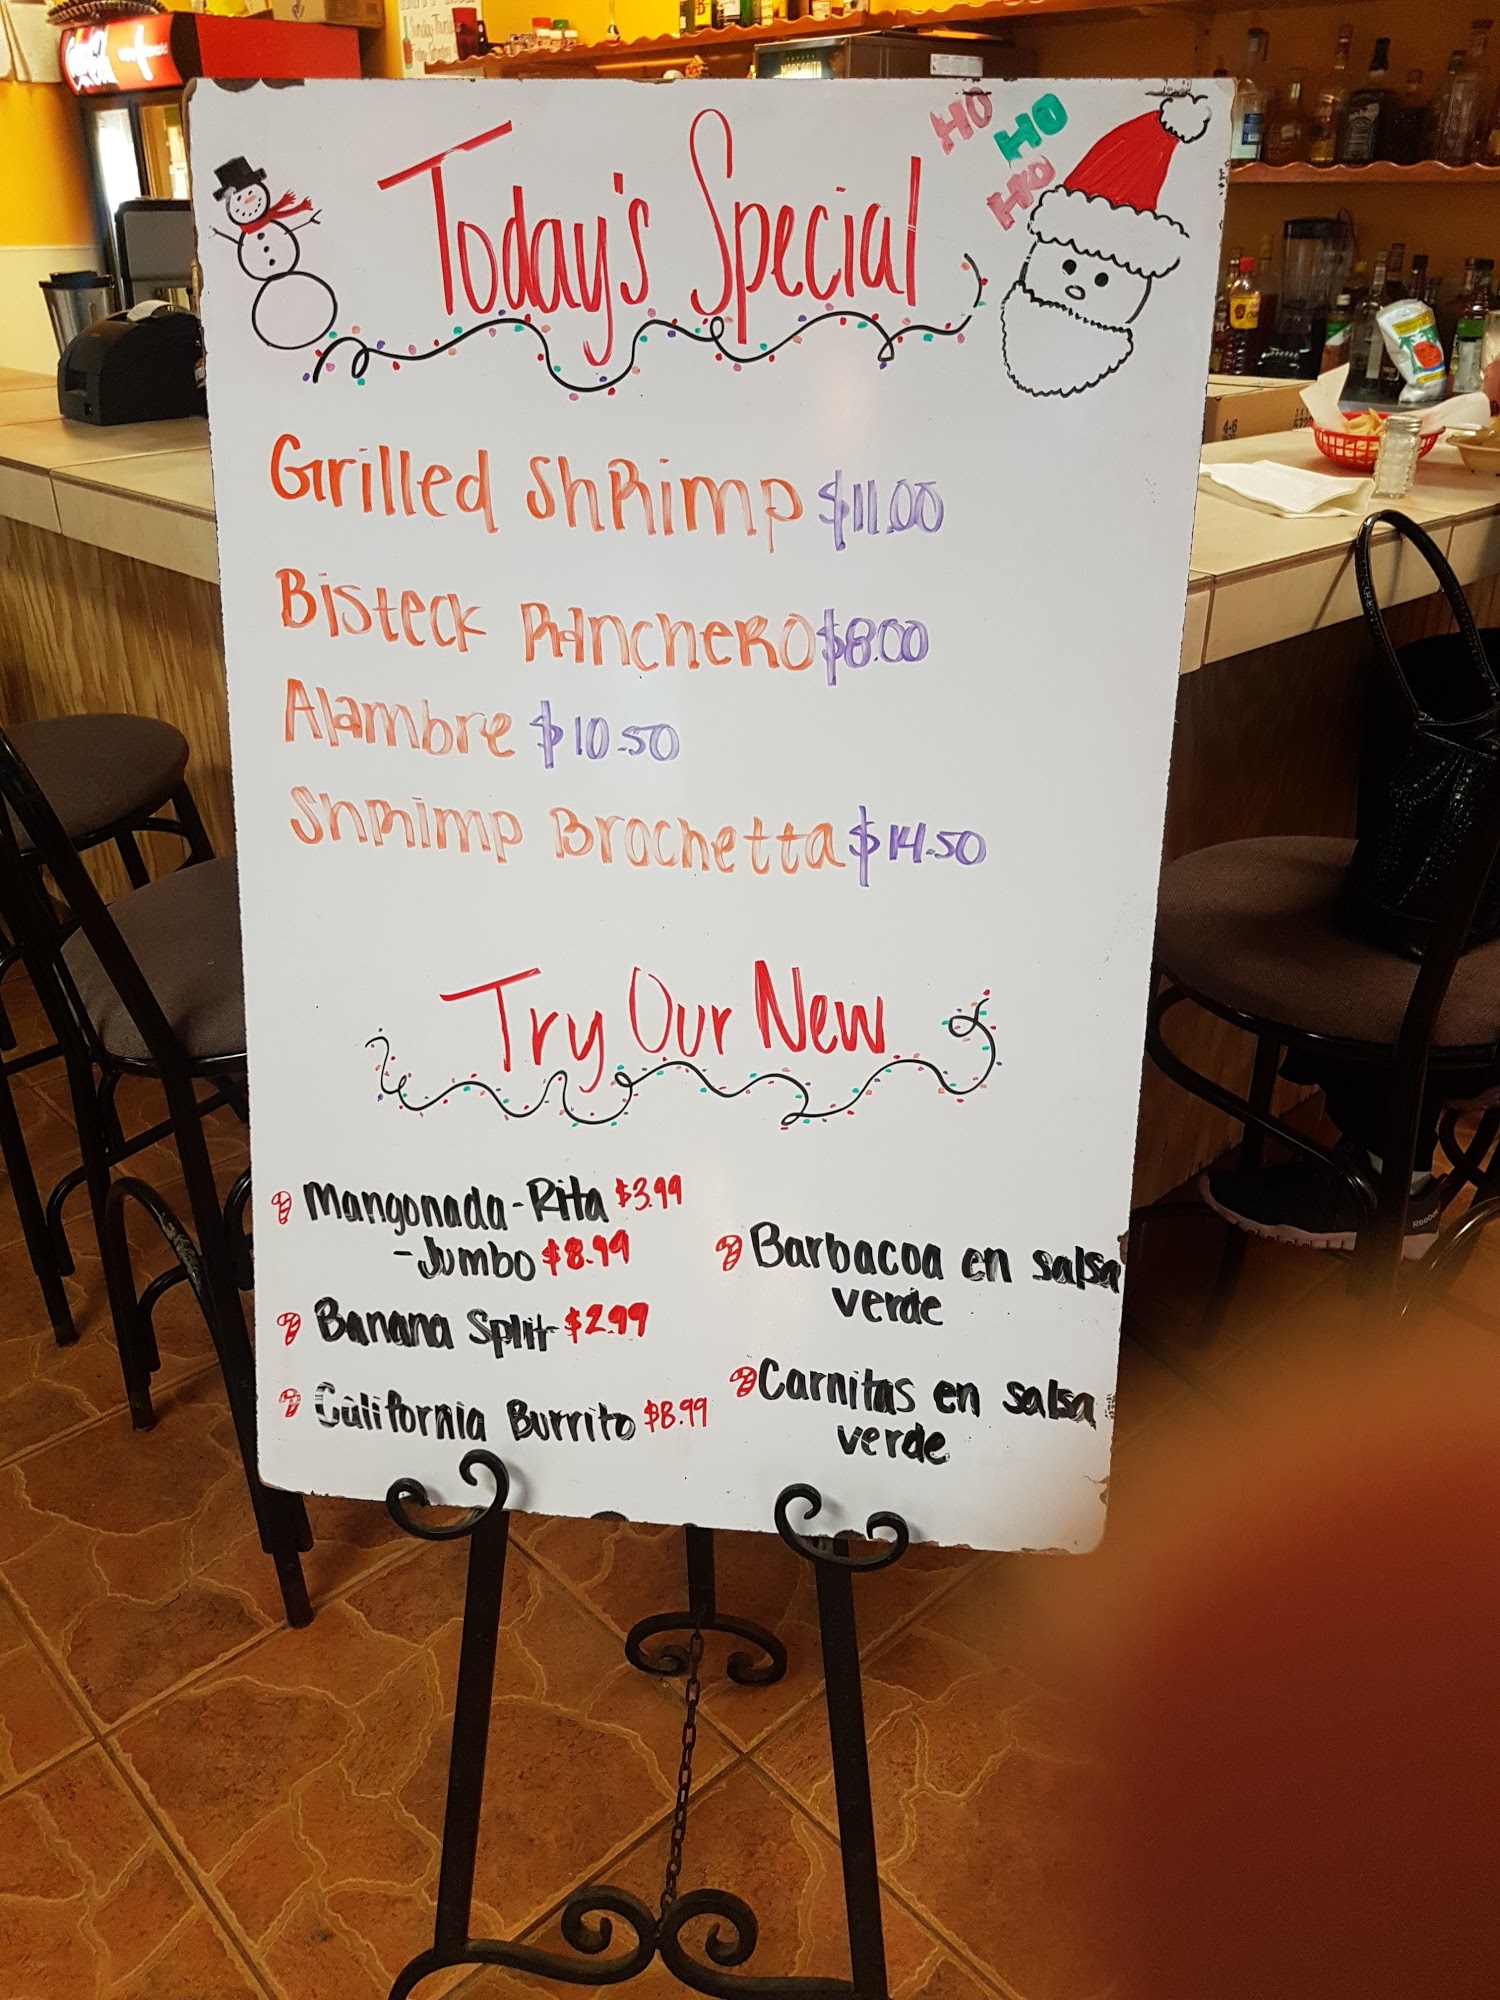 Today's Special
HO
HO
HO
Grilled Shrimp $11.00
Bisteck Ranchero $8.00
Alambre $10.50
Shrimp Brochetta $14.50
Try Our New
Mangonada-Rita $3.99
-Jumbo $8.99
Banana Split $2.99
California Burrito $8.99
Barbacoa en salsa
verde
Carnitas en salsa
verde
Reebok